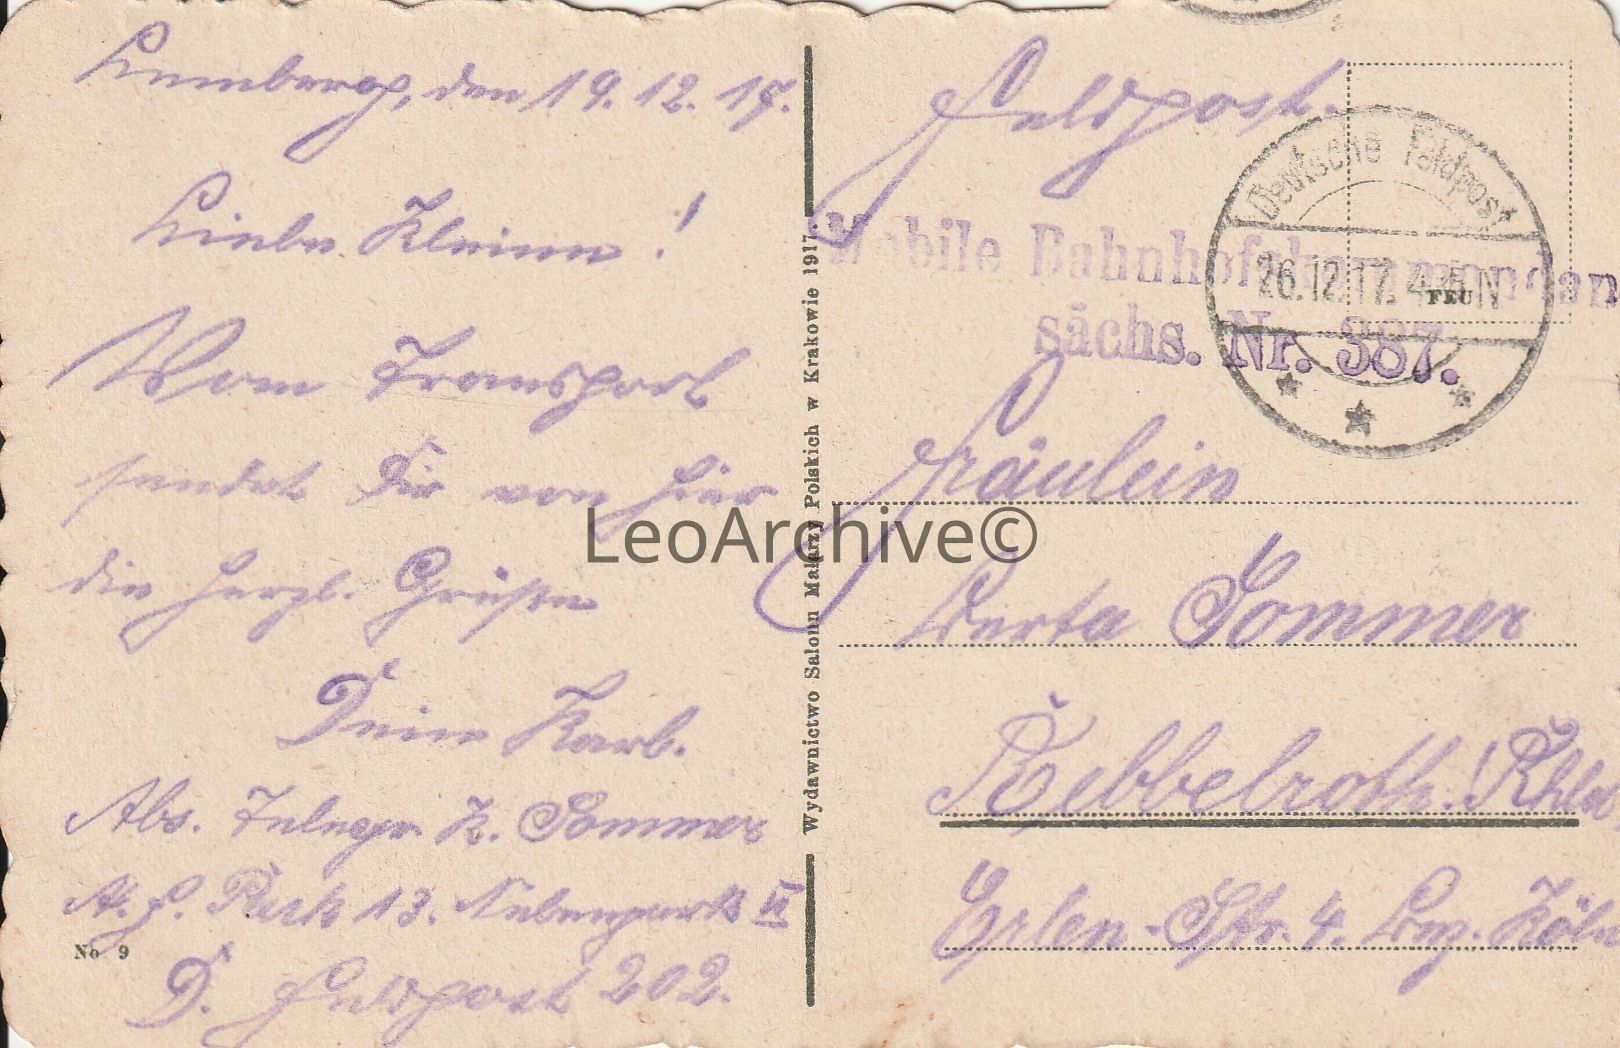 Lemberg, den 19.12.17.
Liebe Kleine!
Vom Transport
sendet Dir von hier
die herzl. Grüße
Dein Karl.
Abs. Telegr. K. Sommer
A. F. Park 13. Nebenpark II
D. Feldpost 202.
No 9
Wydawnictwo Salonu Malarzy Polskich w Krakowie 1917.
Feldpost.
Mobile Bahnhofskommandan
sächs. Nr. 387.
Deutsche Feldpost
26.12.17. 4-5 N
FEU
Fräulein
Berta Sommer
Rebbelroth. Rhld.
Erlen-Str. 4. Bez. Köln
LeoArchive©